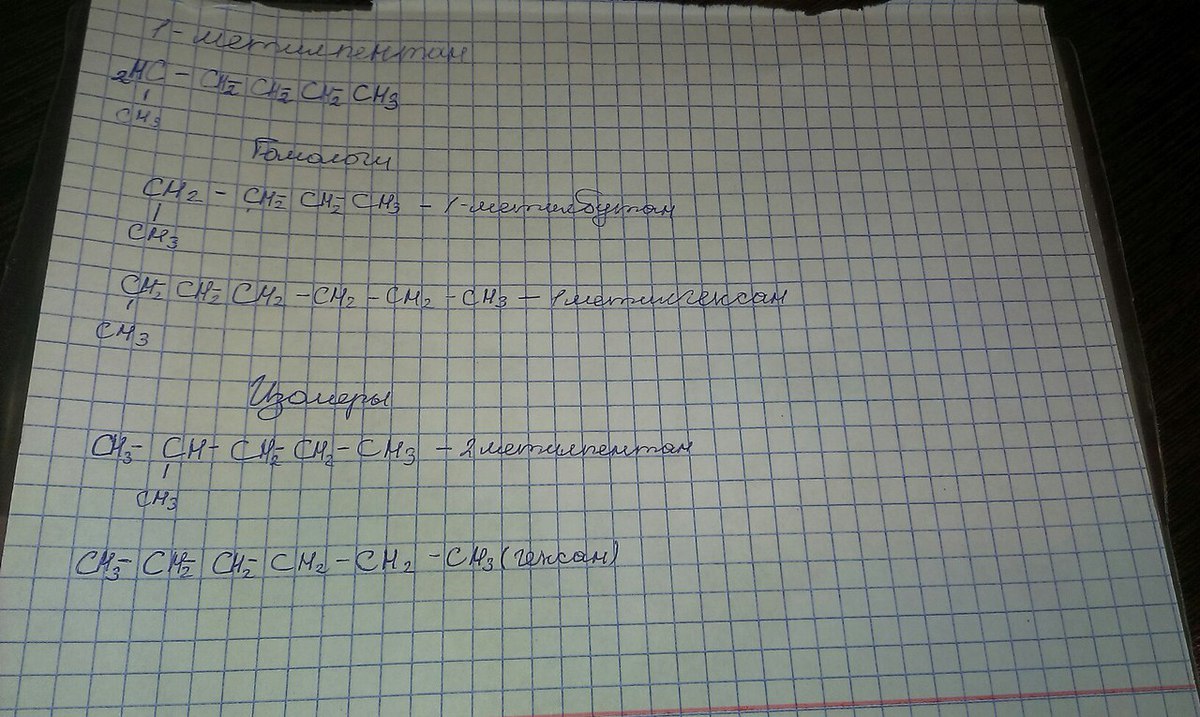 1-метилпентан
2HC - CH2- CH2- CH2- CH3
CH3
Гомологи
CH2 - CH2- CH2- CH3 - 1-метилбутан
CH3
CH2- CH2- CH2 - CH2 - CH2 - CH3 - 1метилгексан
CH3
Изомеры
CH3- CH- CH2- CH2- CH3 - 2метилпентан
CH3
CH3- CH2- CH2- CH2 - CH2 - CH3 (гексан)